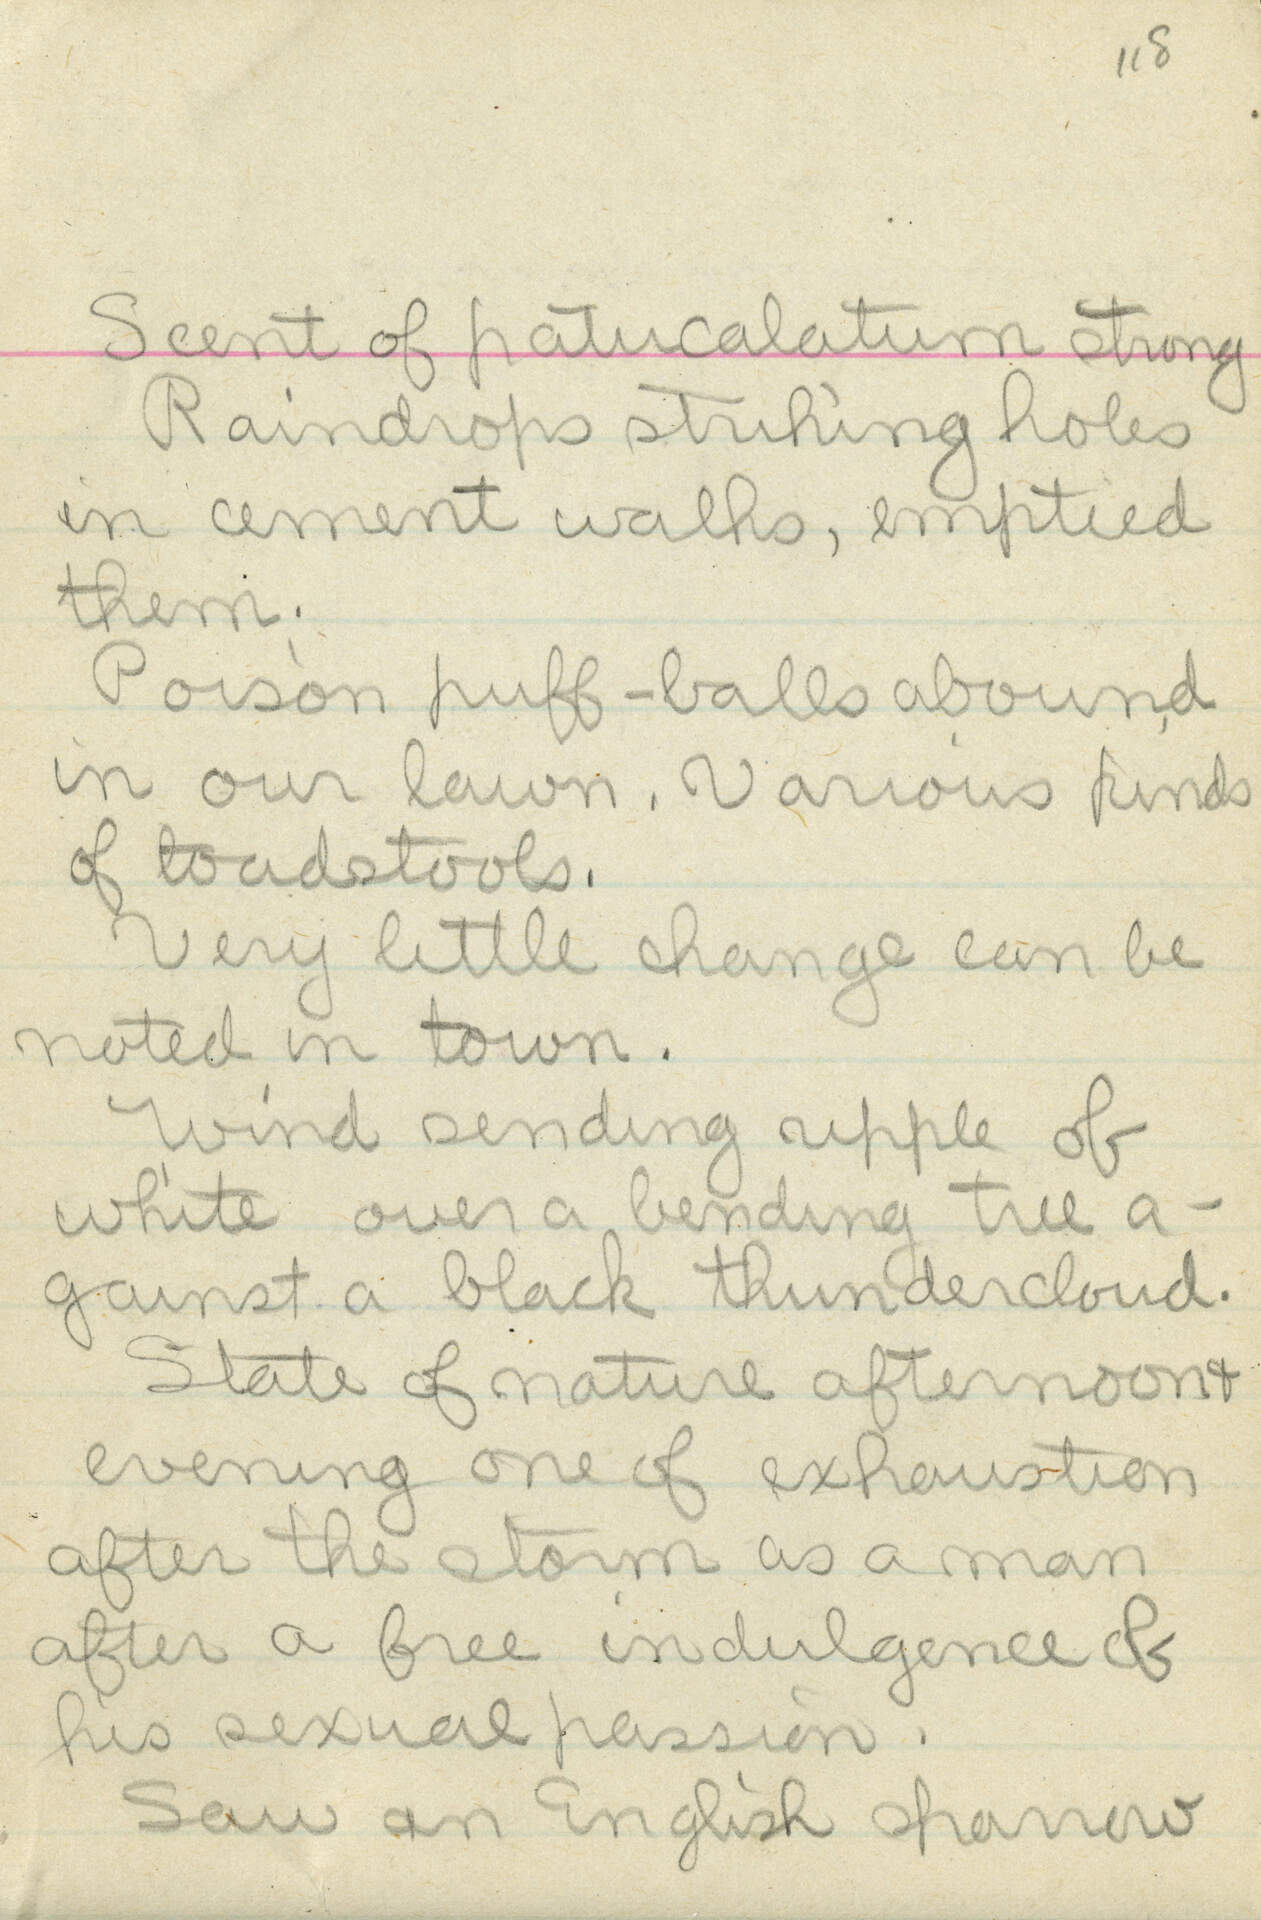 118
Scent of patucalatum strong
Raindrops striking holes
in cement walks, emptied
them.
Poison puff-balls abound
in our lawn. Various kinds
of toadstools.
Very little change can be
noted in town.
Wind sending ripple of
white over a bending tree a-
gainst a black thundercloud.
State of nature afternoon &
evening one of exhaustion
after the storm as a man
after a free indulgence of
his sexual passion.
Saw an English sparrow